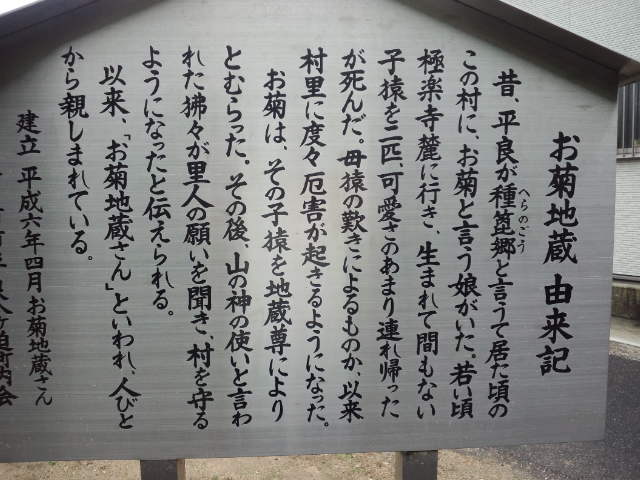 お菊地蔵 由来記
へらのごう
昔、平良が種箆郷と言うて居た頃の
この村に、お菊と言う娘がいた。若い頃
極楽寺麓に行き、生まれて間もない
子猿を二匹、可愛さのあまり連れ帰った
が死んだ。母猿の歎きによるものか、以来
村里に度々厄害が起きるようになった。
お菊は、その子猿を地蔵尊により
とむらった。その後、山の神の使いと言わ
れた狒々が里人の願いを聞き、村を守る
ようになったと伝えられる。
以来、「お菊地蔵さん」といわれ、人びと
から親しまれている。
建立 平成六年四月 お菊地蔵さん